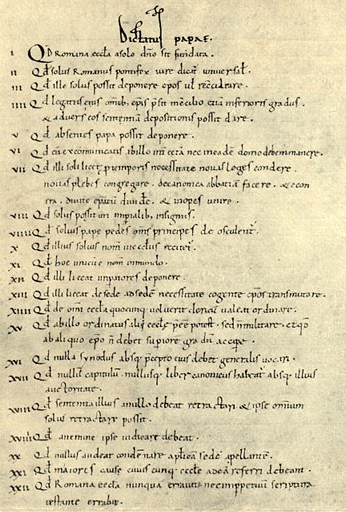 Dictatus papae.
I Qd Romana eccla a solo dno sit fundata.
II Qd solus Romanus pontifex iure dicat universal.
III Qd ille solus possit deponere epos vl recciliare.
IIII Qd legatus eius omib epis psit in ccilio etiam inferioris gradus.
& adversus eos sententiam depositionis possit dare.
V Qd absentes papa possit deponere.
VI Qd cu excommunicatis ab illo int cetera nec in eade domo debem manere.
VII Qd illi soli licet p temporis necessitate novas leges condere.
novas plebes congregare. de canonica abbatia facere. & econ
tra. divite epatu divide. & inopes unire.
VIII Qd solus possit uti impialib insigniis.
VIIII Qd solius pape pedes oms principes deosculent.
X Qd illius solius nom in ecclis recitet.
XI Qd hoc unicu e nom in mundo.
XII Qd illi liceat impatores deponere.
XIII Qd illi liceat de sede ad sede necessitate cogente epos transmutare.
XIIII Qd de omi eccla quocunq voluerit clericu valeat ordinare.
XV Qd ab illo ordinatus alii eccle pee potest. sed n militare. et qd
ab aliquo epo n debet supiore gradu accipe.
XVI Qd nulla synodus absq pcepto eius debet generalis vocari.
XVII Qd nullu capitulu nullusq liber canonicus habeat absq illius
auctoritate.
XVIII Qd sententia illius a nullo debeat retractari & ipse omnium
solus retractare possit.
XVIIII Qd a nemine ipse iudicare debeat.
XX Qd nullus audeat condenare aplica sede apellante.
XXI Qd maiores cause cuiuscunq eccle ad ea referri debeant.
XXII Qd Romana eccla nunqua erravit nec imppetuu scriptura
testante errabit.